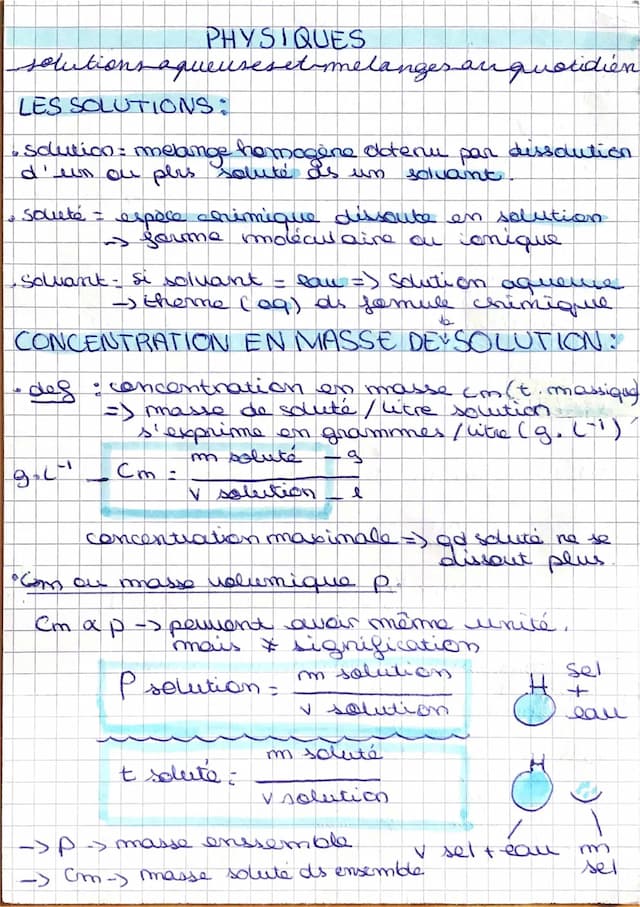 PHYSIQUES
solutions aqueuses et melanges au quotidien
LES SOLUTIONS :
. solution = melange homogène obtenu par dissolution
d'un ou plrs soluté ds un solvant.
. soluté = espèce chimique dissoute en solution
-> forme moléculaire ou ionique
. solvant = si solvant = eau => solution aqueuse
-> theme (aq) ds formule chimique
la
CONCENTRATION EN MASSE DE SOLUTION :
. def : concentration en masse cm (t. massique)
=> masse de soluté / litre solution
s'exprime en grammes / litre (g. L⁻¹)
g. L⁻¹ _ Cm = m soluté - g
v solution - l
concentration maximale => qd soluté ne se
dissout plus.
• Cm ou masse volumique ρ.
Cm α ρ -> peuvent avoir même unité,
mais ≠ signification
ρ solution = m solution
v solution
sel
+
eau
t soluté = m soluté
v solution
-> ρ -> masse enssemble
v sel + eau
m
sel
-> Cm -> masse soluté ds ensemble